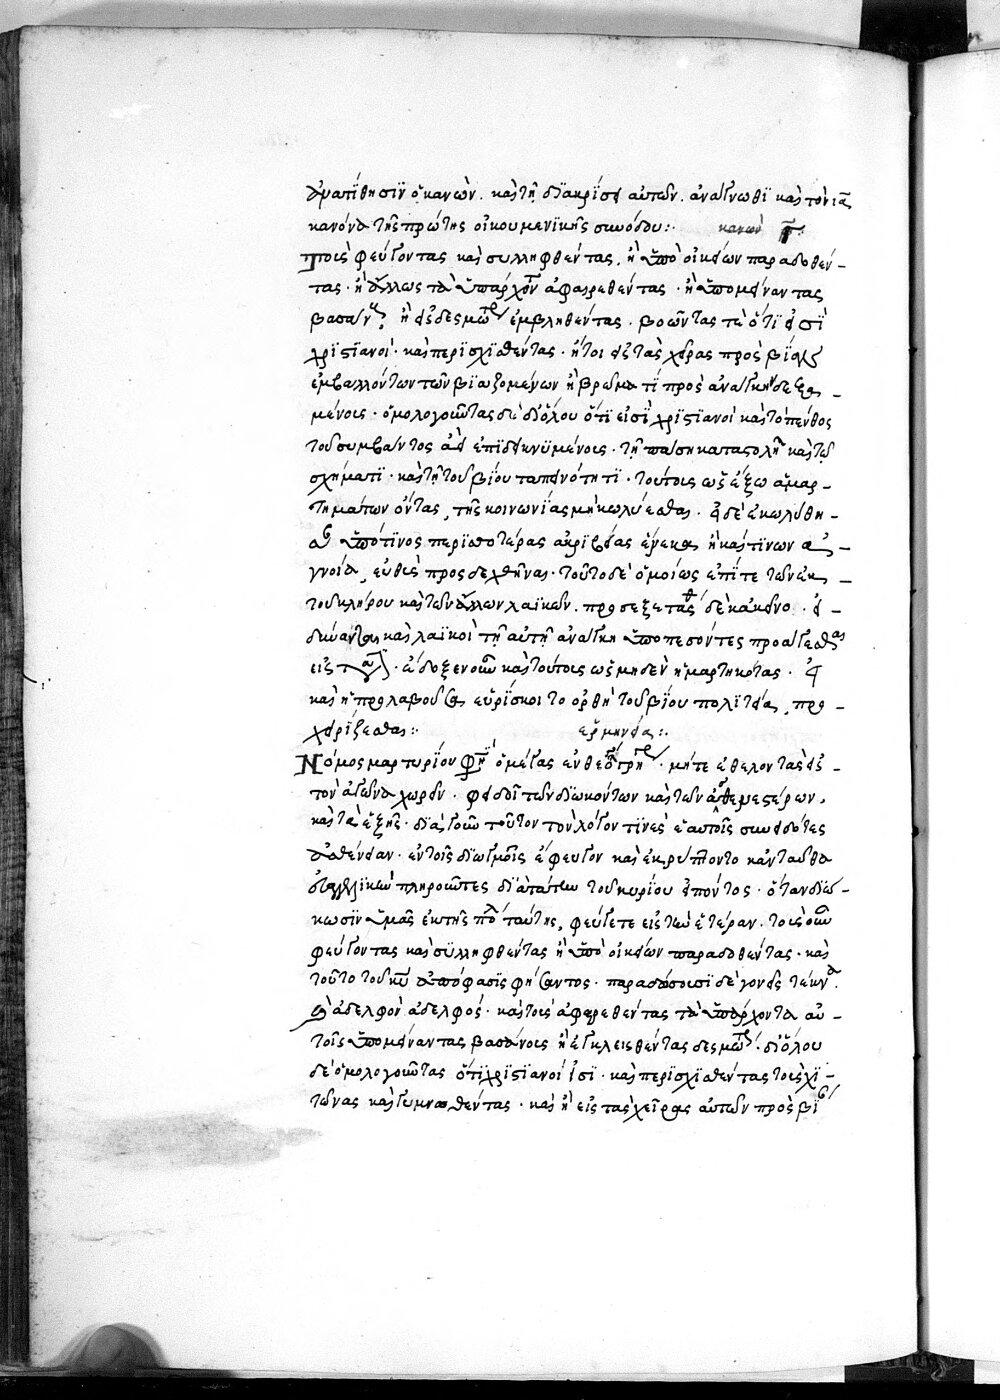 ἀναπϊθησϊν ὁ κανών. καὶ τῇ διακρίσει αὐτῶν. ἀναγνωθϊ καὶ τὸν ια
κανόνα τῆς πρώτης οἰκουμενικῆς συνόδου: κανὼν γ:
Τοὺς φεύγοντας καὶ συλληφθέντας, ἢ ὑπὸ οἰκείων παραδοθέν-
τας. ἢ ἄλλως τὰ ὑπάρχον ἀφαιρεθέντας. ἢ ὑπομείναντας
βασάν, ἢ εἰς δεσμω ἐμβληθέντας. βοῶντας τε ὅτϊ εἰσϊ
χριστιανοί. καὶ περισχϊσθέντας. ἤτοι εἰς τὰς χεῖρας πρὸς βίαν
ἐμβαλλόντων τῶν βϊαζομένων ἢ βρῶμα τϊ πρὸς ἀνάγκην δεξα-
μένους. ὁμολογοῦντας δὲ διόλου ὅτϊ εἰσϊ χριστιανοὶ καὶ τὸ πένθος
τοῦ συμβάντος ἀεὶ ἐπϊδεικνϋμένους. τῇ πάσῃ καταστολῇ καὶ τῷ
σχήματϊ. καὶ τῇ τοῦ βίου ταπεινότητϊ. τούτους ὡς ἔξω ἁμαρ-
τημάτων ὄντας, τῆς κοινωνίας μὴ κωλύεσθαι. εἰ δὲ ἐκωλύθη-
σαν ὑπό τϊνος περϊσσοτέρας ἀκριβείας ἕνεκα ἢ καὶ τϊνων ἀ-
γνοία, εὐθὺς προσδεχθῆναι. τοῦτο δὲ ὁμοίως ἐπί τε τῶν ἐκ
τοῦ κλήρου καὶ τῶν ἄλλων λαϊκῶν. προσεξετασ δὲ κἀκεῖνο. εἰ
δύνανται καὶ λαϊκοὶ τῇ αὐτῇ ἀνάγκη ὑποπεσόντες προάγεσθαι
εἰς τάξ. ἔδοξεν οὖν καὶ τούτους ὡς μηδὲν ἡμαρτηκότας. εἰ
καὶ ἡ προλαβοῦσα εὑρίσκοιτο ὀρθὴ τοῦ βίου πολϊτεία, προ-
χειρίζεσθαι: ἑρμηνεία:
Νόμος μαρτυρίου φη ὁ μέγας ἐν θεολο γρη. μήτε ἐθελοντὰς εἰς
τὸν ἀγῶνα χωρεῖν. φειδοῖ τῶν διωκόντων καὶ τῶν ἀσθενεστέρων.
καὶ τὰ ἑξῆς. διὰ γοῦν τοῦτον τὸν λόγον τϊνὲς ἑαυτοῖς συνειδότες
ἀσθένειαν. ἐν τοῖς διωγμοῖς ἔφευγον καὶ ἐκρύπτοντο κἀνταῦθα
εὐαγγελϊκὴν πληροῦντες διάταξιν τοῦ κυρίου εἰπόντος. ὅταν διώ-
κωσϊν ὑμᾶς ἐκ τῆς πολ ταύτης, φεύγετε εἰς τὴν ἑτέραν. τοὺς οὖν
φεύγοντας καὶ συλληφθέντας ἢ ὑπὸ οἰκείων παραδοθέντας. καὶ
τοῦτο τοῦ κυ ἀπόφασϊς φήσαντος. παραδώσουσϊ δὲ γονεῖς τέκνα.
καὶ ἀδελφὸν ἀδελφός. καὶ τοὺς ἀφαιρεθέντας τὰ ὑπάρχοντα αὐ-
τοῖς ὑπομείναντας βασάνους ἢ ἐγκλεισθέντας δεσμω. διόλου
δὲ ὁμολογοῦντας ὅτϊ χριστϊανοί εἰσϊ. καὶ περϊσχϊσθέντας τοὺς χϊ-
τῶνας καὶ γυμνωθέντας. καὶ ἢ εἰς τὰς χεῖρας αὐτῶν πρὸς βϊ